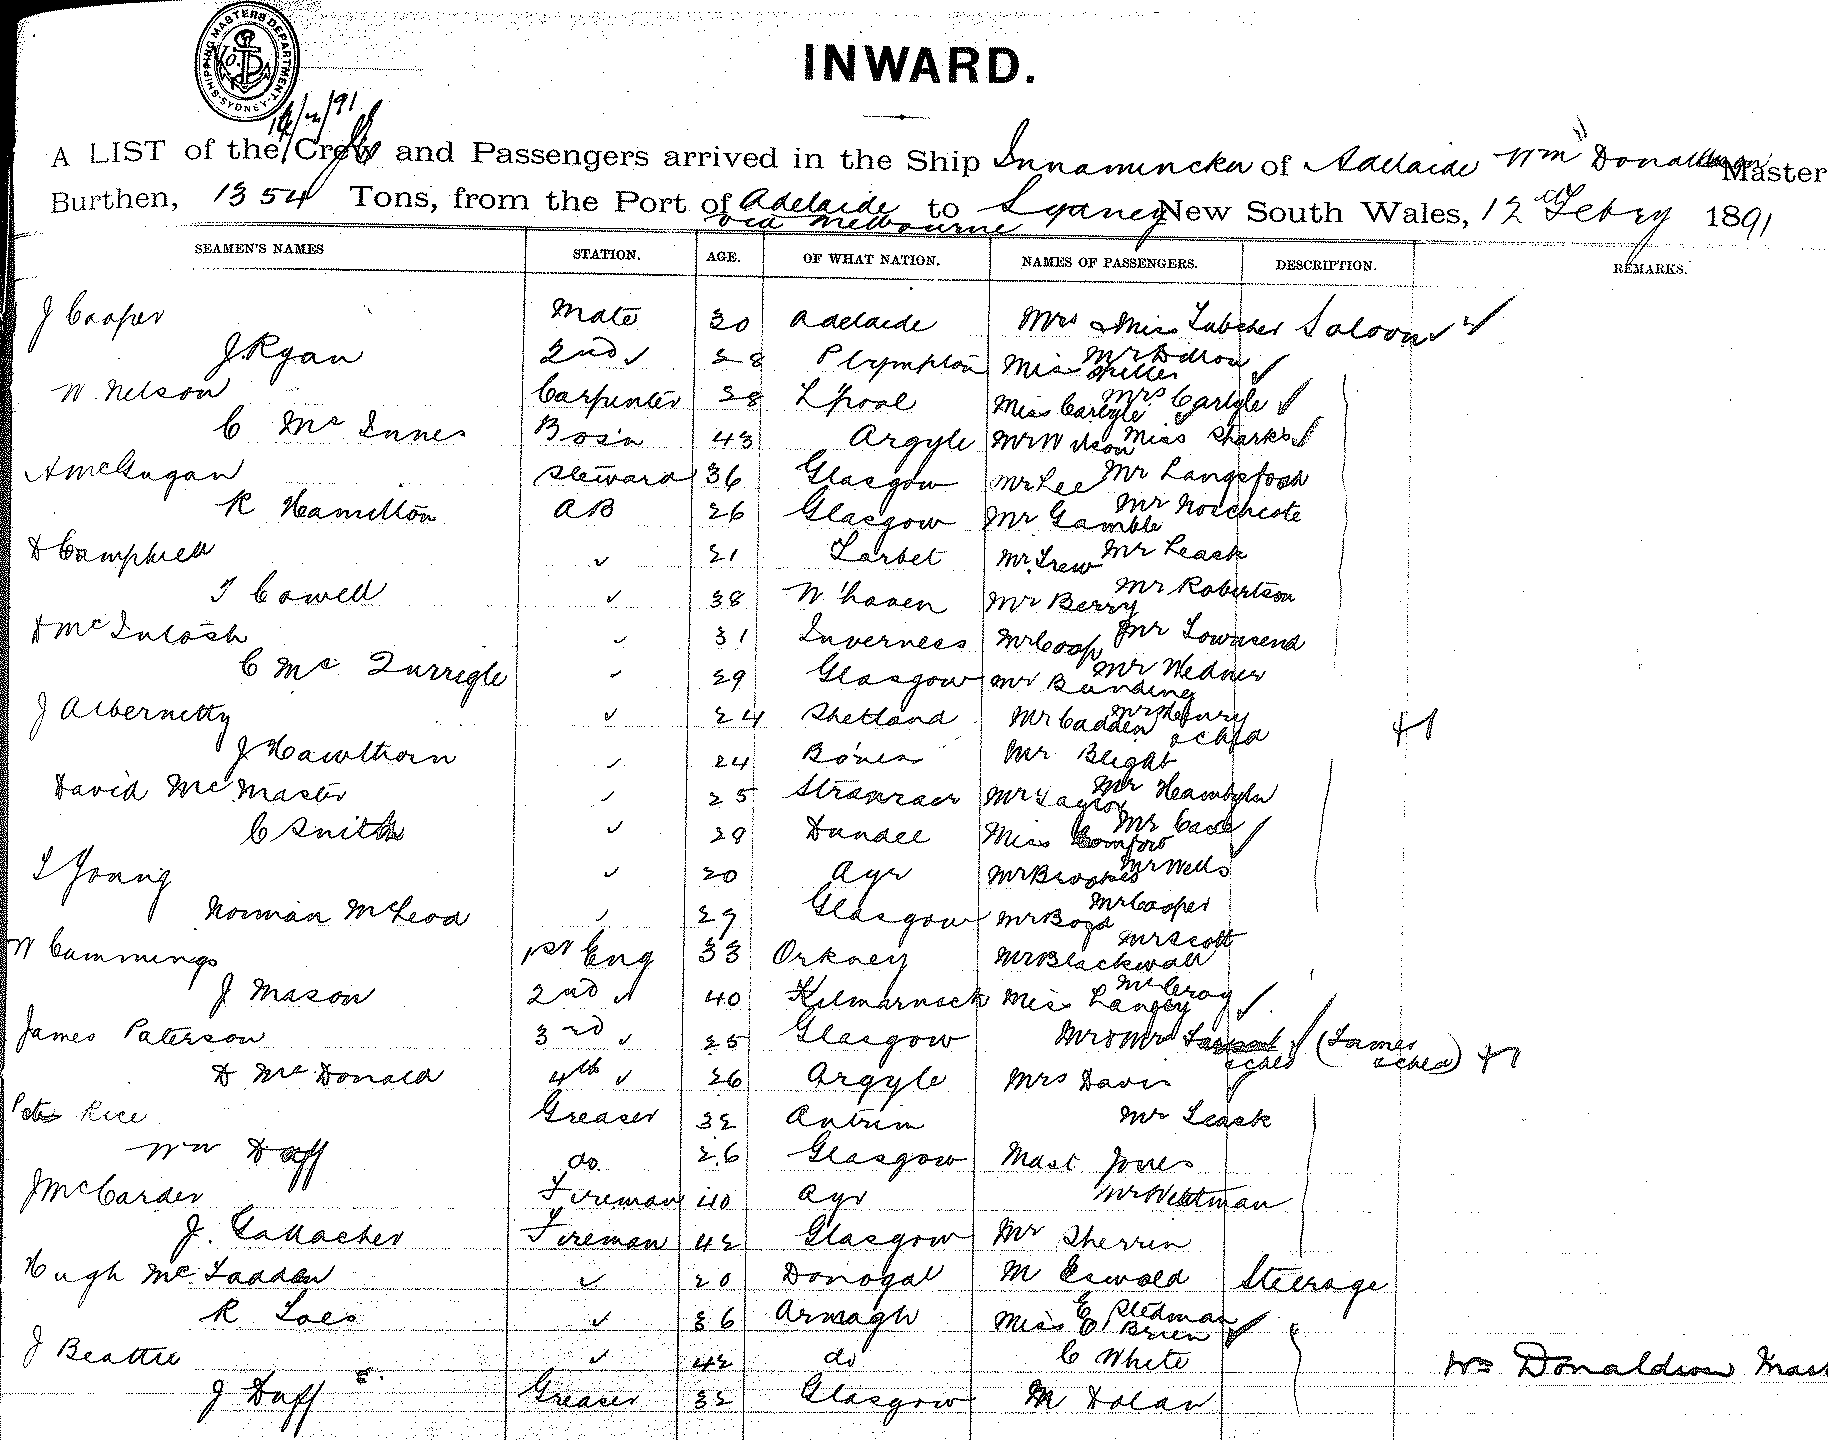 SHIPPING MASTERS DEPARTMENT SYDNEY
INWARD.
A LIST of the Crew and Passengers arrived in the Ship Innamincka of Adelaide Wm Donaldson Master
Burthen, 1354 Tons, from the Port of Adelaide via Melbourne to Sydney New South Wales, 12 Febry 1891
SEAMEN'S NAMES STATION. AGE. OF WHAT NATION. NAMES OF PASSENGERS. DESCRIPTION. REMARKS.
J Cooper Mate 30 Adelaide Mrs & Miss Saloon
J Ryan 2nd 28 Plympton Miss Miller
W Nelson Carpenter 28 L'pool Miss Carlyle Mrs Carlyle
C McInnes Bos'n 43 Argyle Mr Wilson Miss Sharks
A McGugan Steward 36 Glasgow Mr Lee Mr Langsford
R Hamilton AB 26 Glasgow Mr Gamble Mr
D Campbell 21 Tarbet Mr Trew Mr Leack
T Cowell 38 W'haven Mr Berry Mr Robertson
D McIntosh 31 Inverness Mr Coop Mr Townsend
C Mc 29 Glasgow Mr Bunding Mr
J Abernetty 24 Shetland Mr Cadden
J Hawthorn 24 Bo'ness Mr Blight
David McMaster 25 Stranraer Mr Taylor Mr
C Smith 29 Dundee Miss Comford Mr Cave
T Young 20 Ayr Mr Brookes Mr Wells
Norman McLeod 29 Glasgow Mr Boyd Mr Cooper
W Cummings 1st Eng 33 Orkney Mr Blackwall Mr Scott
J Mason 2nd 40 Kilmarnock Miss Langley
James Paterson 3rd 25 Glasgow Mr & Mrs
D McDonald 4th 26 Argyle Mrs Davis
Peter Rice Greaser 32 Antrim Mr Leack
Wm Duff do 26 Glasgow Mast Jones
J McCarder Fireman 40 Ayr Mr
J. Gallacher Fireman 42 Glasgow Mr Sherrin
Hugh McFadden 20 Donogal M Oswald Steerage
R 36 Armagh Miss E Stedman E Brien
J Beattie 42 do C White Wm Donaldson Mast
J Duff Greaser 32 Glasgow M Dolan